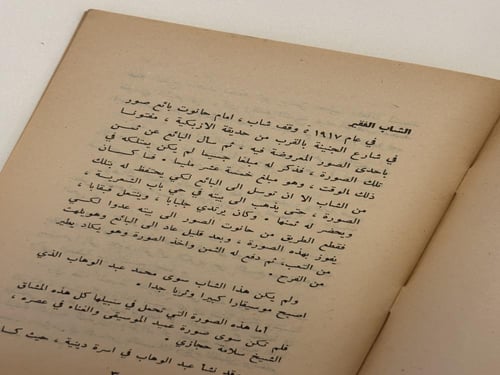 الشاب الفقير
في عام ١٩١٧ ، وقف شاب ، امام حانوت بائع صور
في شارع الجنينة بالقرب من حديقة الازبكية ، مفتونا
باحدى الصور المعروضة فيه ، ثم سأل البائع عن ثمن
تلك الصورة ، فذكر له مبلغا جسيما لم يكن يمتلكه في
ذلك الوقت ، وهو مبلغ خمسة عشر مليما ٠ فما كسان
من الشاب الا ان توسل الى البائع لكي يحتفظ له بتلك
الصورة ، حتى يذهب الى بيته في حي باب الشعرية ،
ويحضر له ثمنها ٠ وكان يرتدي جلبابا ، وينتعل قبقابا ،
فقطع الطريق من حانوت الصور الى بيته عدوا لكسي
يفوز بهذه الصورة ، وبعد قليل عاد الى البائع وهويلهث
من التعب، ثم دفع له الثمن واخذ الصورة وهو يكاد يطير
من الفرح ٠
ولم يكن هذا الشاب سوى محمد عبد الوهاب الذي
اصبح موسيقارا كبيرا وثريا جدا ٠
اما هذه الصورة التي تحمل في سبيلها كل هذه المشاق
فلم تكن سوى صورة عميد الموسيقى والغناء في عصره ،
الشيخ سلامة حجازي ٠
نشأ عبد الوهاب في اسرة دينية ، حيث كسا